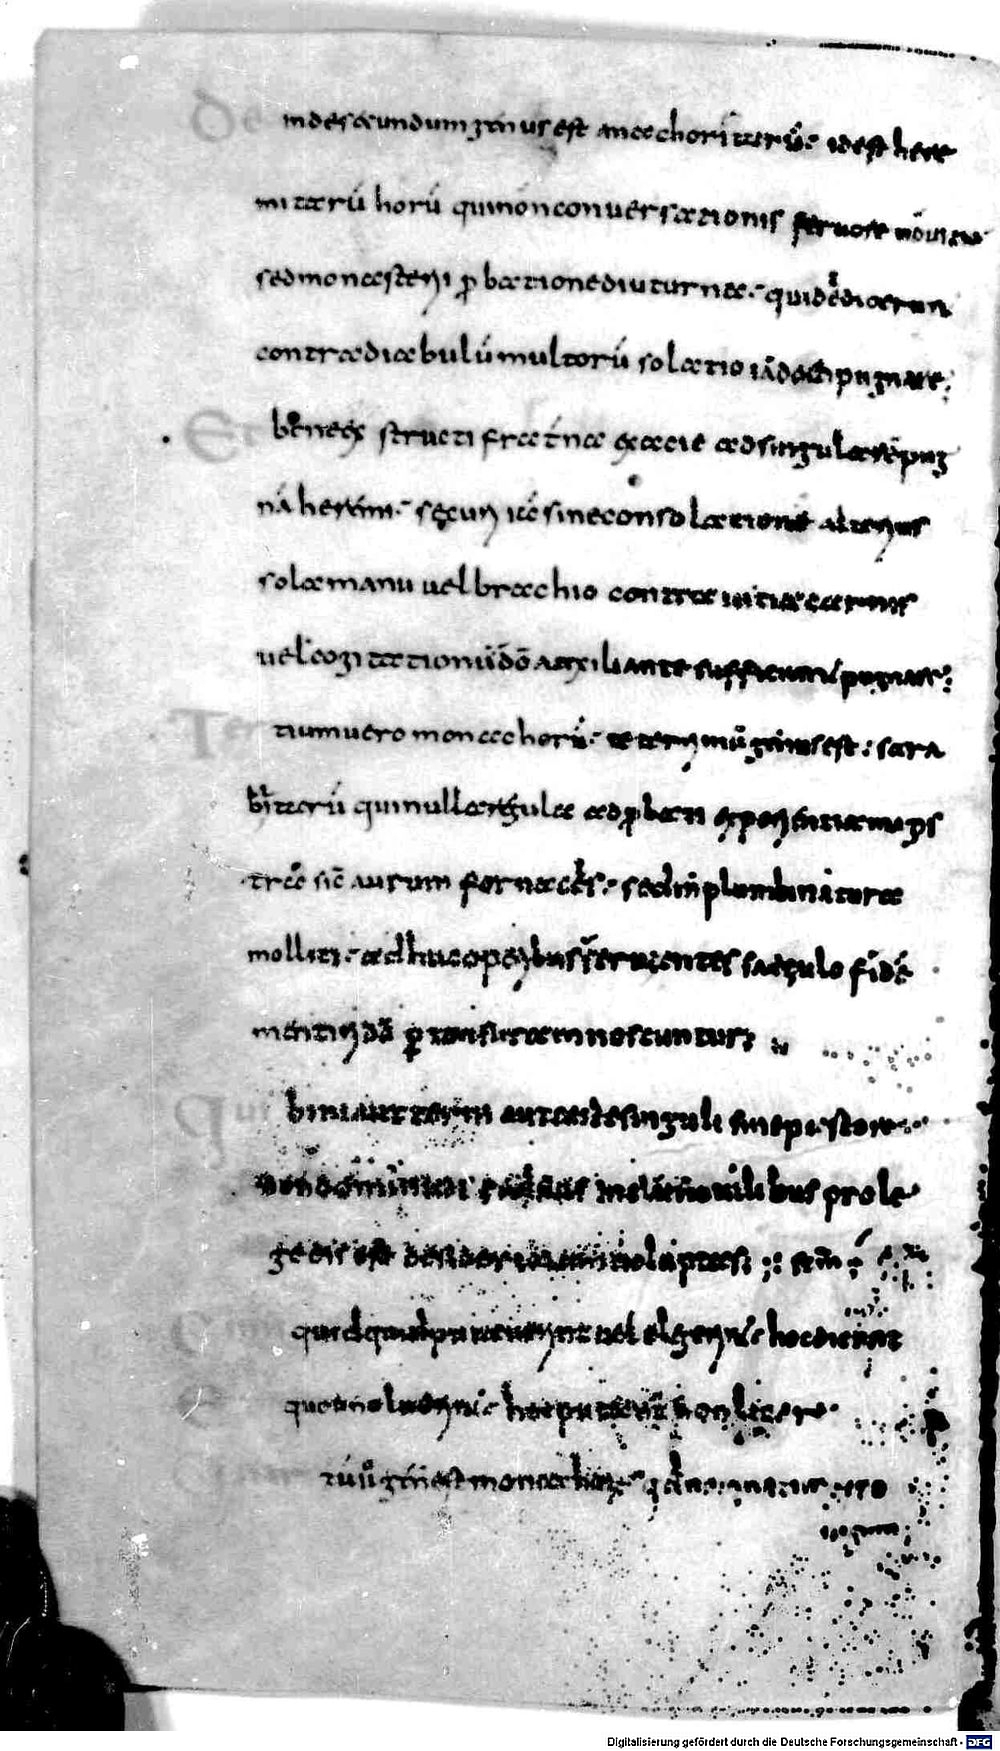 De indesecundum gen̄ us est anachoritarū· idest here
mitarū horū quinon conversationis fervore nōviti
sedmonasterii ꝓ bationediuturna· quididicerun
contradiabulū multorū solatio iādocti pugnare;
Et bene ex structi frat̄na exacie adsingularē pug
nā heremi· securi iā sineconsolatione alterius
solamanu vel brachio contra vitiacarnis
vel cogitationū dō auxiliante sufficiunt pugnare;
Ter tiumuero monachorū· teterrimū genus est: sara
baitarū quinulla regula adꝓbati experientiamagis
tra sic aurum fornacis· sedin plumbi natura
molliti· adhuc operibus servantes saeculo fidē
mentiri dō ꝑ tonsuram noscuntur;
Qui bini aut terni aut certe singuli sinepastore·
non dominicis sed suis inclusi ovilibus pro le
ge eis est desideriorum voluptas;
quidquid putaverint vel elegerint· hoc dicunt
quod noluerint· hoc putant non licere·
Quar tū ū gen̄ est monachorū· qd nominatur gyro
vagum;
Digitalisierung gefördert durch die Deutsche Forschungsgemeinschaft - DFG